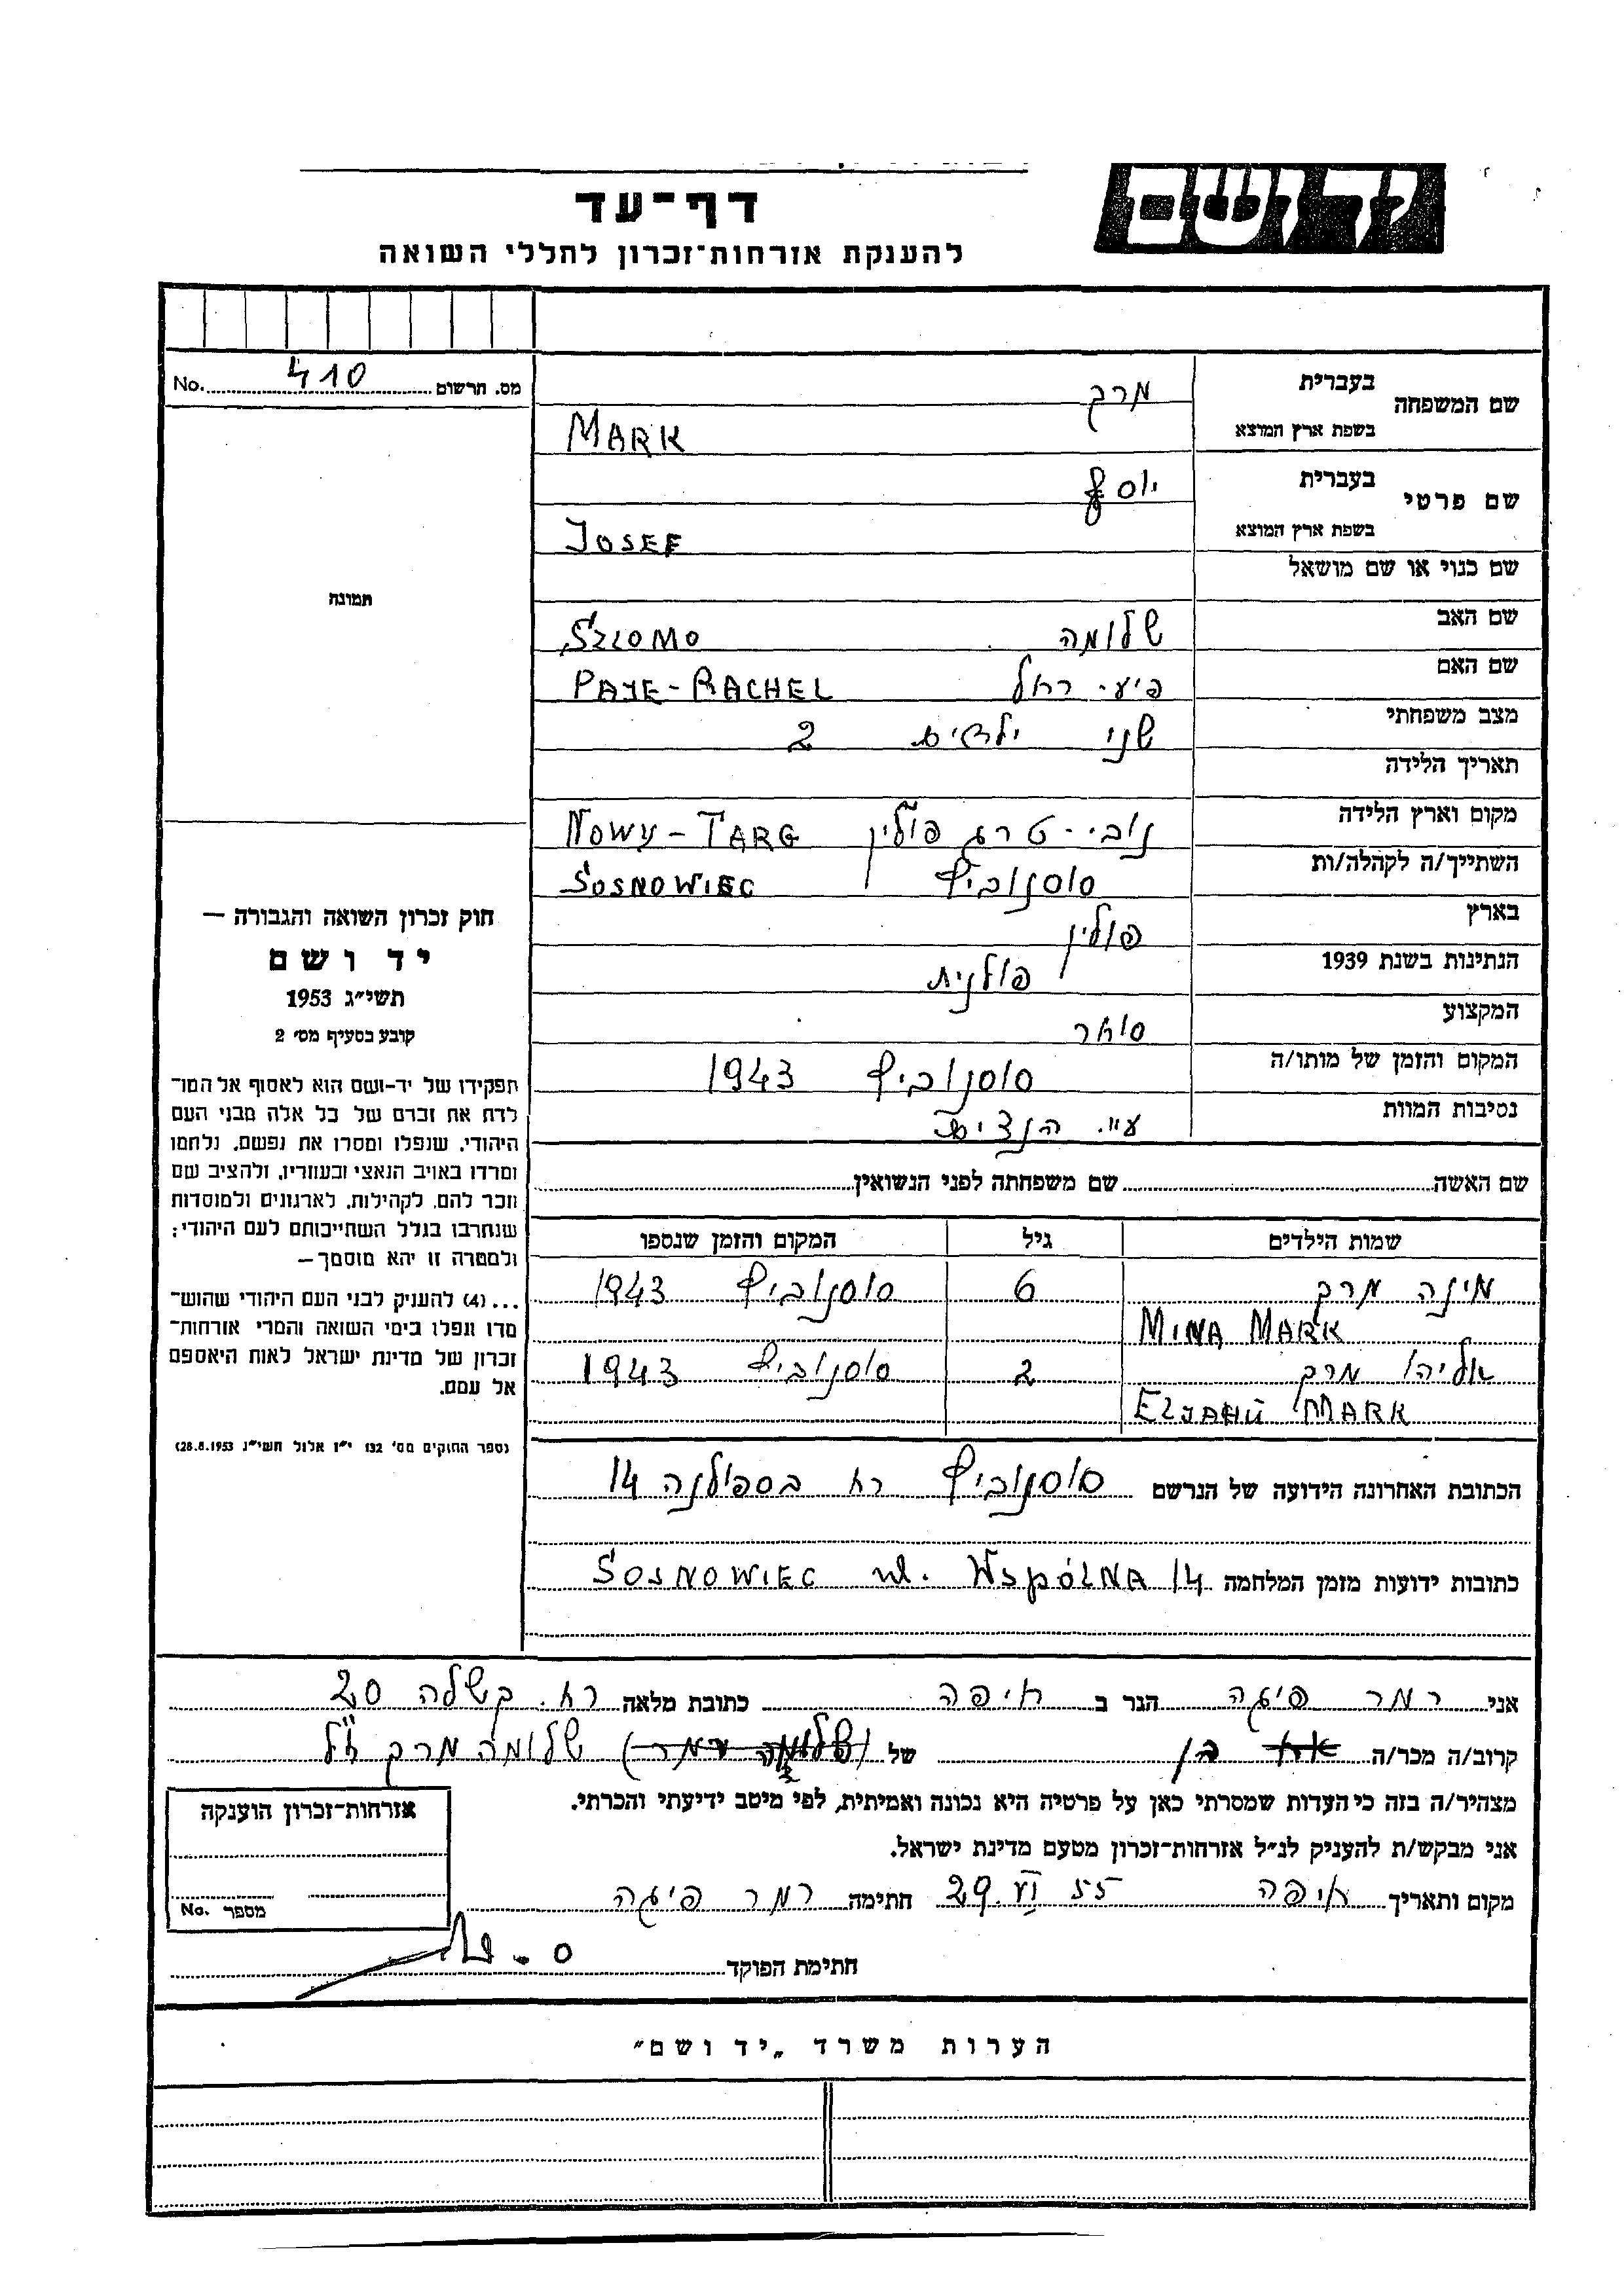 יד ושם
דף־עד
להענקת אזרחות־זכרון לחללי השואה
מס. הרשום 410 No.
שם המשפחה
בעברית מרק
בשפת ארץ המוצא MARK
שם פרטי
בעברית יוסף
בשפת ארץ המוצא JOSEF
שם כנוי או שם מושאל
שם האב שלומה SZLOMO
שם האם פייע־רחל PAJE-RACHEL
מצב משפחתי שני ילדים 2
תאריך הלידה
מקום וארץ הלידה נובי-טרג פולין NOWY-TARG
השתייך/ה לקהלה/ות סוסנוביץ SOSNOWIEC
בארץ פולין
הנתינות בשנת 1939 פולנית
המקצוע סוחר
המקום והזמן של מותו/ה סוסנוביץ 1943
נסיבות המוות ע״י הנצים
שם האשה שם משפחתה לפני הנשואין
שמות הילדים גיל המקום והזמן שנספו
מינה מרק 6 סוסנוביץ 1943
MINA MARK
אליהו מרק 2 סוסנוביץ 1943
ELJAHU MARK
הכתובת האחרונה הידועה של הנרשם סוסנוביץ רח בספולנה 14
כתובות ידועות מזמן המלחמה SOSNOWIEC ul. WSPÓLNA 14
תמונה
חוק זכרון השואה והגבורה —
יד ושם
תשי״ג 1953
קובע בסעיף מס׳ 2
תפקידו של יד-ושם הוא לאסוף אל המו־
לדת את זכרם של כל אלה מבני העם
היהודי, שנפלו ומסרו את נפשם, נלחמו
ומרדו באויב הנאצי ובעוזריו, ולהציב שם
וזכר להם, לקהילות, לארגונים ולמוסדות
שנחרבו בגלל השתייכותם לעם היהודי;
ולמטרה זו יהא מוסמך —
...(4) להעניק לבני העם היהודי שהוש־
מדו ונפלו בימי השואה והמרי אזרחות־
זכרון של מדינת ישראל לאות היאספם
אל עמם.
(ספר החוקים מס׳ 132 י״ז אלול תשי״ג 28.8.1953)
אני רמר פיגה הגר ב חיפה כתובת מלאה רח. קשלה 20
קרוב/ה מכר/ה בן של שלומה מרק ז״ל
מצהיר/ה בזה כי העדות שמסרתי כאן על פרטיה היא נכונה ואמיתית, לפי מיטב ידיעתי והכרתי.
אני מבקש/ת להעניק לנ״ל אזרחות־זכרון מטעם מדינת ישראל.
מקום ותאריך חיפה 29.VI 55 חתימה רמר פיגה
חתימת הפוקד
אזרחות־זכרון הוענקה
מספר No.
הערות משרד „יד ושם״